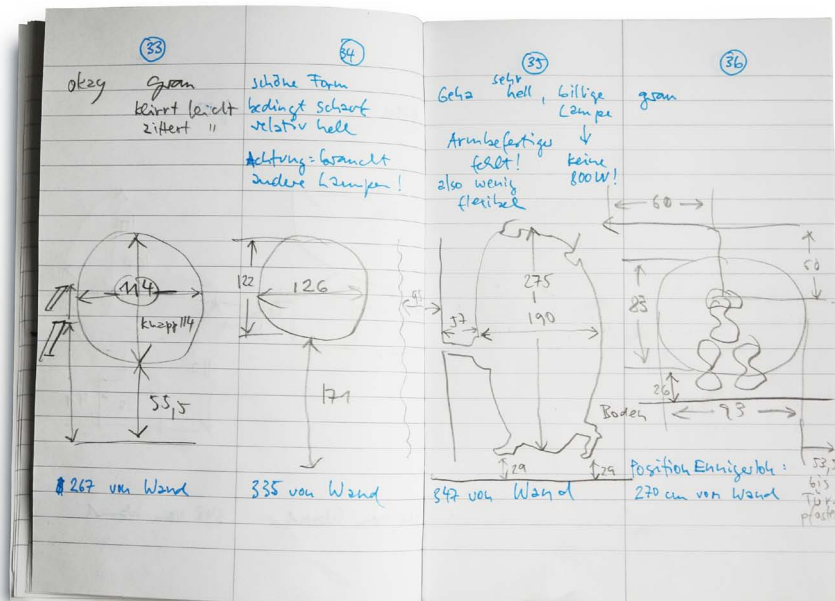 33
okay grau
klirrt leicht
zittert "
114
knapp 114
55,5
267 von Wand
34
schöne Form
bedingt scharf
relativ hell
Achtung: braucht
andere Lampen!
122
126
171
335 von Wand
35
sehr
Geha hell, billige
Lampe
Armbefestiger
fehlt! keine
800W!
also wenig
flexibel
275
57
190
29
29
347 von Wand
36
grau
60
60
83
26
Boden
93
Position Ennigerloh:
270 cm von Wand
bis
Tür-
pfosten